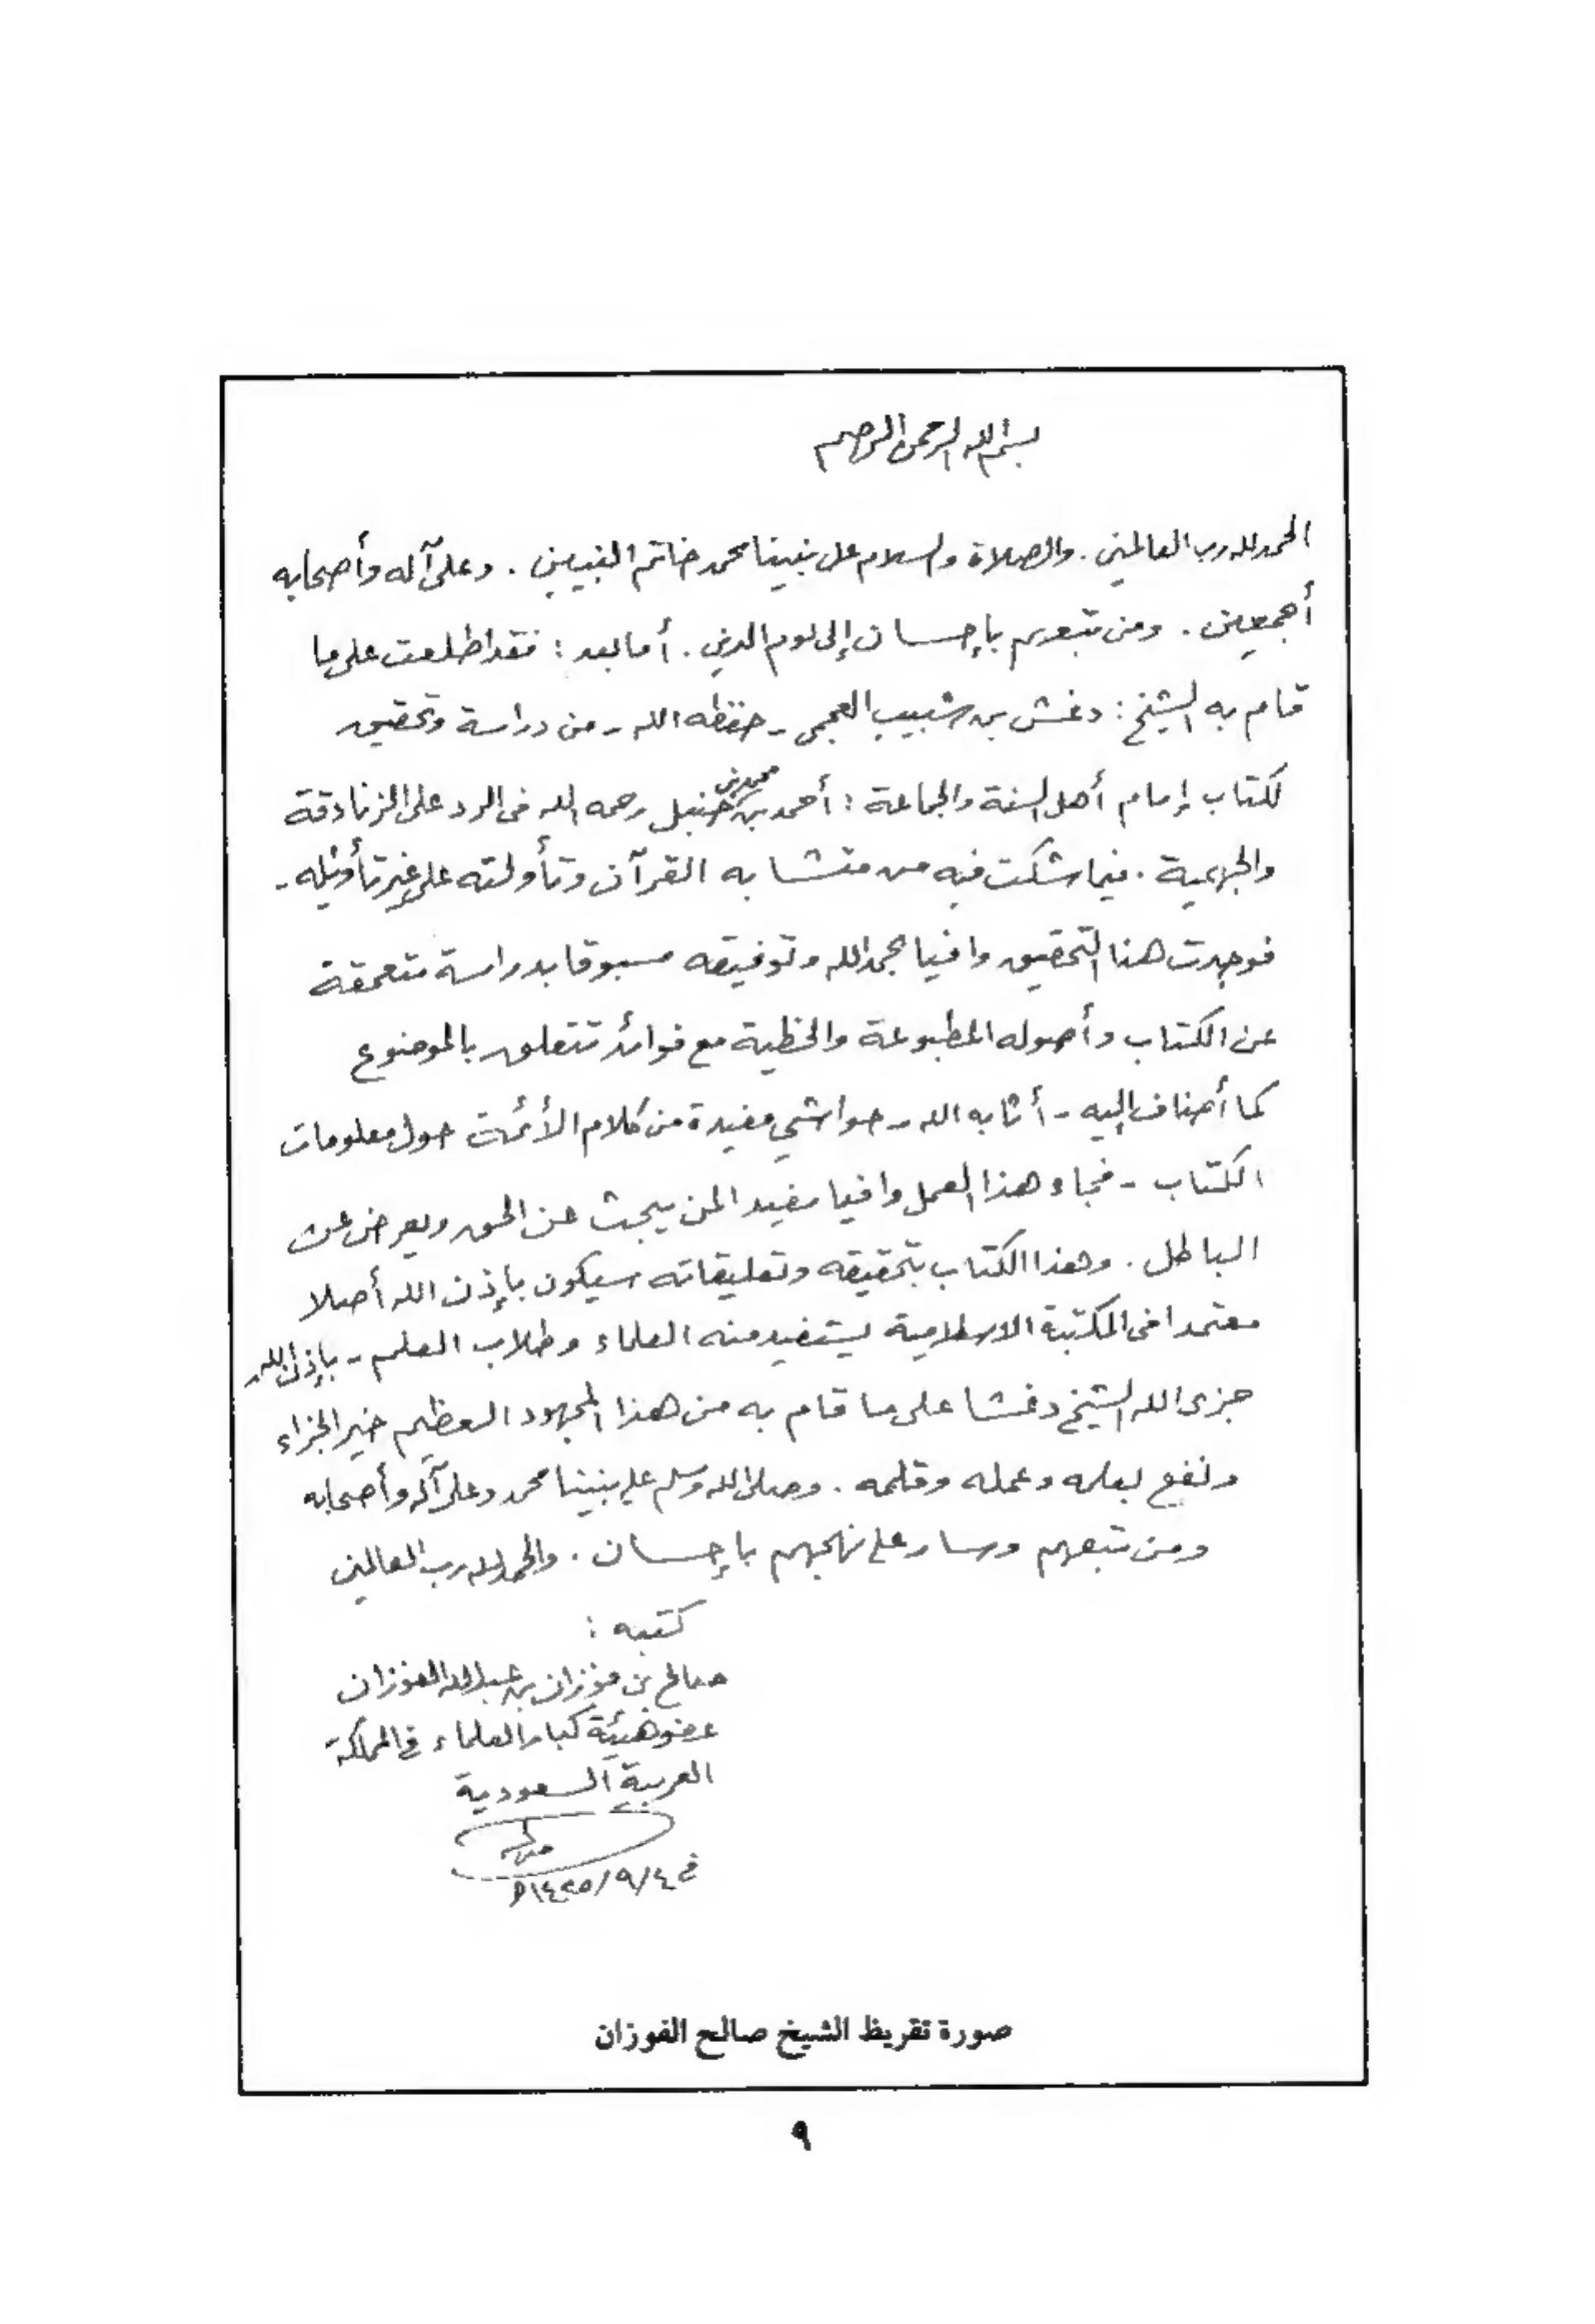 بسم الله الرحمن الرحيم
الحمد لله رب العالمين . والصلاة والسلام على نبينا محمد خاتم النبيين . وعلى آله وأصحابه
أجمعين . ومن تبعهم بإحسان إلى يوم الدين . أما بعد : فقد اطلعت على ما
قام به الشيخ : دغش بن شبيب العجمي - حفظه الله - من دراسة وتحقيق
لكتاب إمام أهل السنة والجماعة : أحمد بن محمد بن حنبل رحمه الله في الرد على الزنادقة
والجهمية . فيما شكت فيه من متشابه القرآن وتأولته على غير تأويله -
فوجدت هذا التحقيق وافيا بحمد الله وتوفيقه مسبوقا بدراسة متعمقة
عن الكتاب وأصوله المطبوعة والخطية مع فوائد تتعلق بالموضوع
كما أضاف إليه - أثابه الله - حواشي مفيدة من كلام الأئمة حول معلومات
الكتاب - فجاء هذا العمل وافيا مفيدا لمن يبحث عن الحق ويعرض عن
الباطل . وهذا الكتاب بتحقيقه وتعليقاته سيكون بإذن الله أصلا
معتمدا في المكتبة الاسلامية يستفيد منه العلماء وطلاب العلم - بإذن الله -
جزى الله الشيخ دغشا على ما قام به من هذا المجهود العظيم خير الجزاء
ونفع بعلمه وعمله وقلمه . وصلى الله وسلم على نبينا محمد وعلى آله وأصحابه
ومن تبعهم وسار على نهجهم بإحسان . والحمد لله رب العالمين
كتبه :
صالح بن فوزان بن عبد الله الفوزان
عضو هيئة كبار العلماء في المملكة
العربية السعودية
في ٤/٩/١٤٢٥هـ
صورة تقريظ الشيخ صالح الفوزان
٩